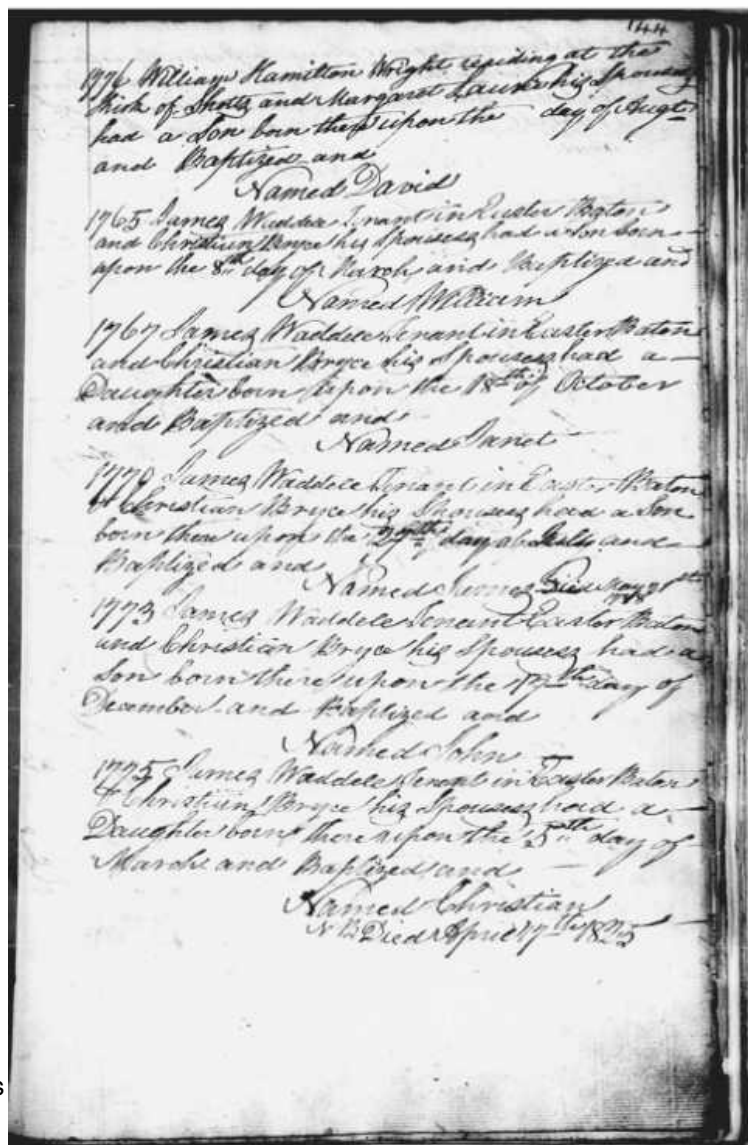 144
1776 William Hamilton Wright residing at the
Kirk of Shotts and Margaret his Spouses
had a Son born there upon the day of Augt
and Baptized and
Named David
1765 James Waddele Tenant in Easter Baton
and Christian Bryce his Spouses had a Son born
upon the 8th day of March and Baptized and
Named William
1767 James Waddele Tenant in Easter Baton
and Christian Bryce his Spouses had a
Daughter born upon the 18th of October
and Baptized and
Named Janet
1770 James Waddele Tenant in Easter Baton
& Christian Bryce his Spouses had a Son
born there upon the 27th day of July and
Baptized and
Named James Died May
1773 James Waddele Tenant Easter Baton
and Christian Bryce his Spouses had a
Son born there upon the 17th day of
December and Baptized and
Named John
1775 James Waddele Tenant in Easter Baton
& Christian Bryce his Spouses had a
Daughter born there upon the day of
March and Baptized and
Named Christian
NB Died April 17th 1835
s